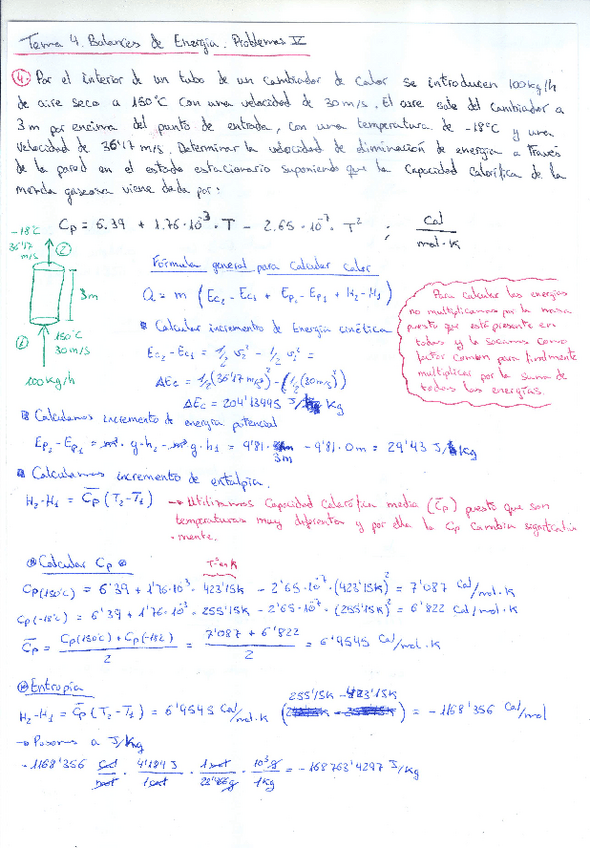 Tema 4. Balances de Energía. Problemas IV
4. Por el interior de un tubo de un cambiador de calor se introducen 100 kg/h
de aire seco a 150°C con una velocidad de 30 m/s. El aire sale del cambiador a
3 m por encima del punto de entrada, con una temperatura de -18°C y una
velocidad de 36'17 m/s. Determinar la velocidad de eliminación de energía a través
de la pared en el estado estacionario suponiendo que la capacidad calorífica de la
mezcla gaseosa viene dada por:
Cp = 6.39 + 1.76·10⁻³·T - 2.65·10⁻⁷·T² ; cal/mol·K
-18°C
36'17 m/s
②
3m
①
150°C
30 m/s
100 kg/h
Fórmula general para calcular calor
Q = m (Ec₂ - Ec₁ + Ep₂ - Ep₁ + H₂ - H₁)
Calcular incremento de Energía cinética
Ec₂ - Ec₁ = 1/2 v₂² - 1/2 v₁² =
ΔEc = 1/2 (36'17 m/s)² - (1/2 (30m/s)²)
ΔEc = 204'13445 J/Kg
Para calcular las energías
no multiplicamos por la masa
puesto que está presente en
todas y la sacamos como
factor común para finalmente
multiplicar por la suma de
todas las energías.
Calculamos incremento de energía potencial
Ep₂ - Ep₁ = m·g·h₂ - m·g·h₁ = 9'81·3m - 9'81·0m = 29'43 J/Kg
Calculamos incremento de entalpia.
H₂-H₁ = C̄p (T₂-T₁) → Utilizamos Capacidad Calorífica media (C̄p) puesto que son
temperaturas muy diferentes y por ello la Cp cambia significativa
-mente.
Calcular Cp
Tª en K
Cp(150°C) = 6'39 + 1'76·10⁻³·423'15K - 2'65·10⁻⁷·(423'15K)² = 7'087 Cal/mol·K
Cp(-18°C) = 6'39 + 1'76·10⁻³·255'15K - 2'65·10⁻⁷·(255'15K)² = 6'822 Cal/mol·K
C̄p = Cp(150°C) + Cp(-18°C) / 2 = 7'087 + 6'822 / 2 = 6'9545 Cal/mol·K
Entropía
H₂-H₁ = C̄p (T₂-T₁) = 6'9545 Cal/mol·K (255'15K - 423'15K) = -1168'356 Cal/mol
→ Pasamos a J/Kg
-1168'356 cal/mol · 4'184 J/1 cal · 1 mol/28'966g · 10³g/1Kg = -168763'4297 J/Kg